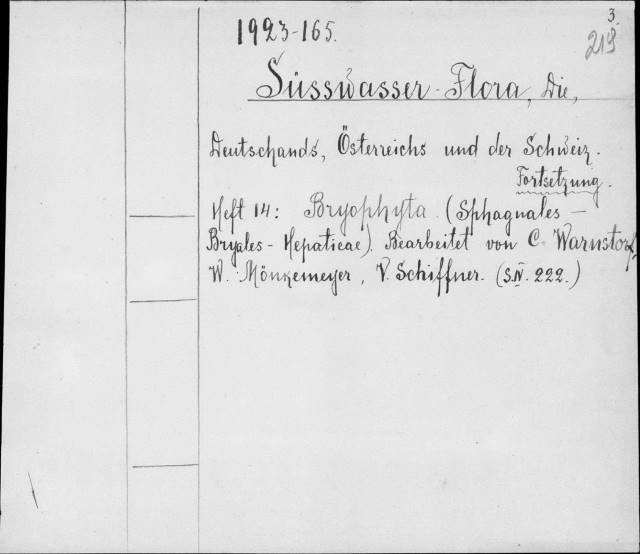 3.
219
1923-165.
Süsswasser-Flora, Die,
Deutschands, Österreichs und der Schweiz.
Fortsetzung.
Heft 14: Bryophyta (Sphagnales -
Bryales - Hepaticae). Bearbeitet von C. Warnstorf,
W. Mönkemeyer, V. Schiffner. (S. IV. 222.)